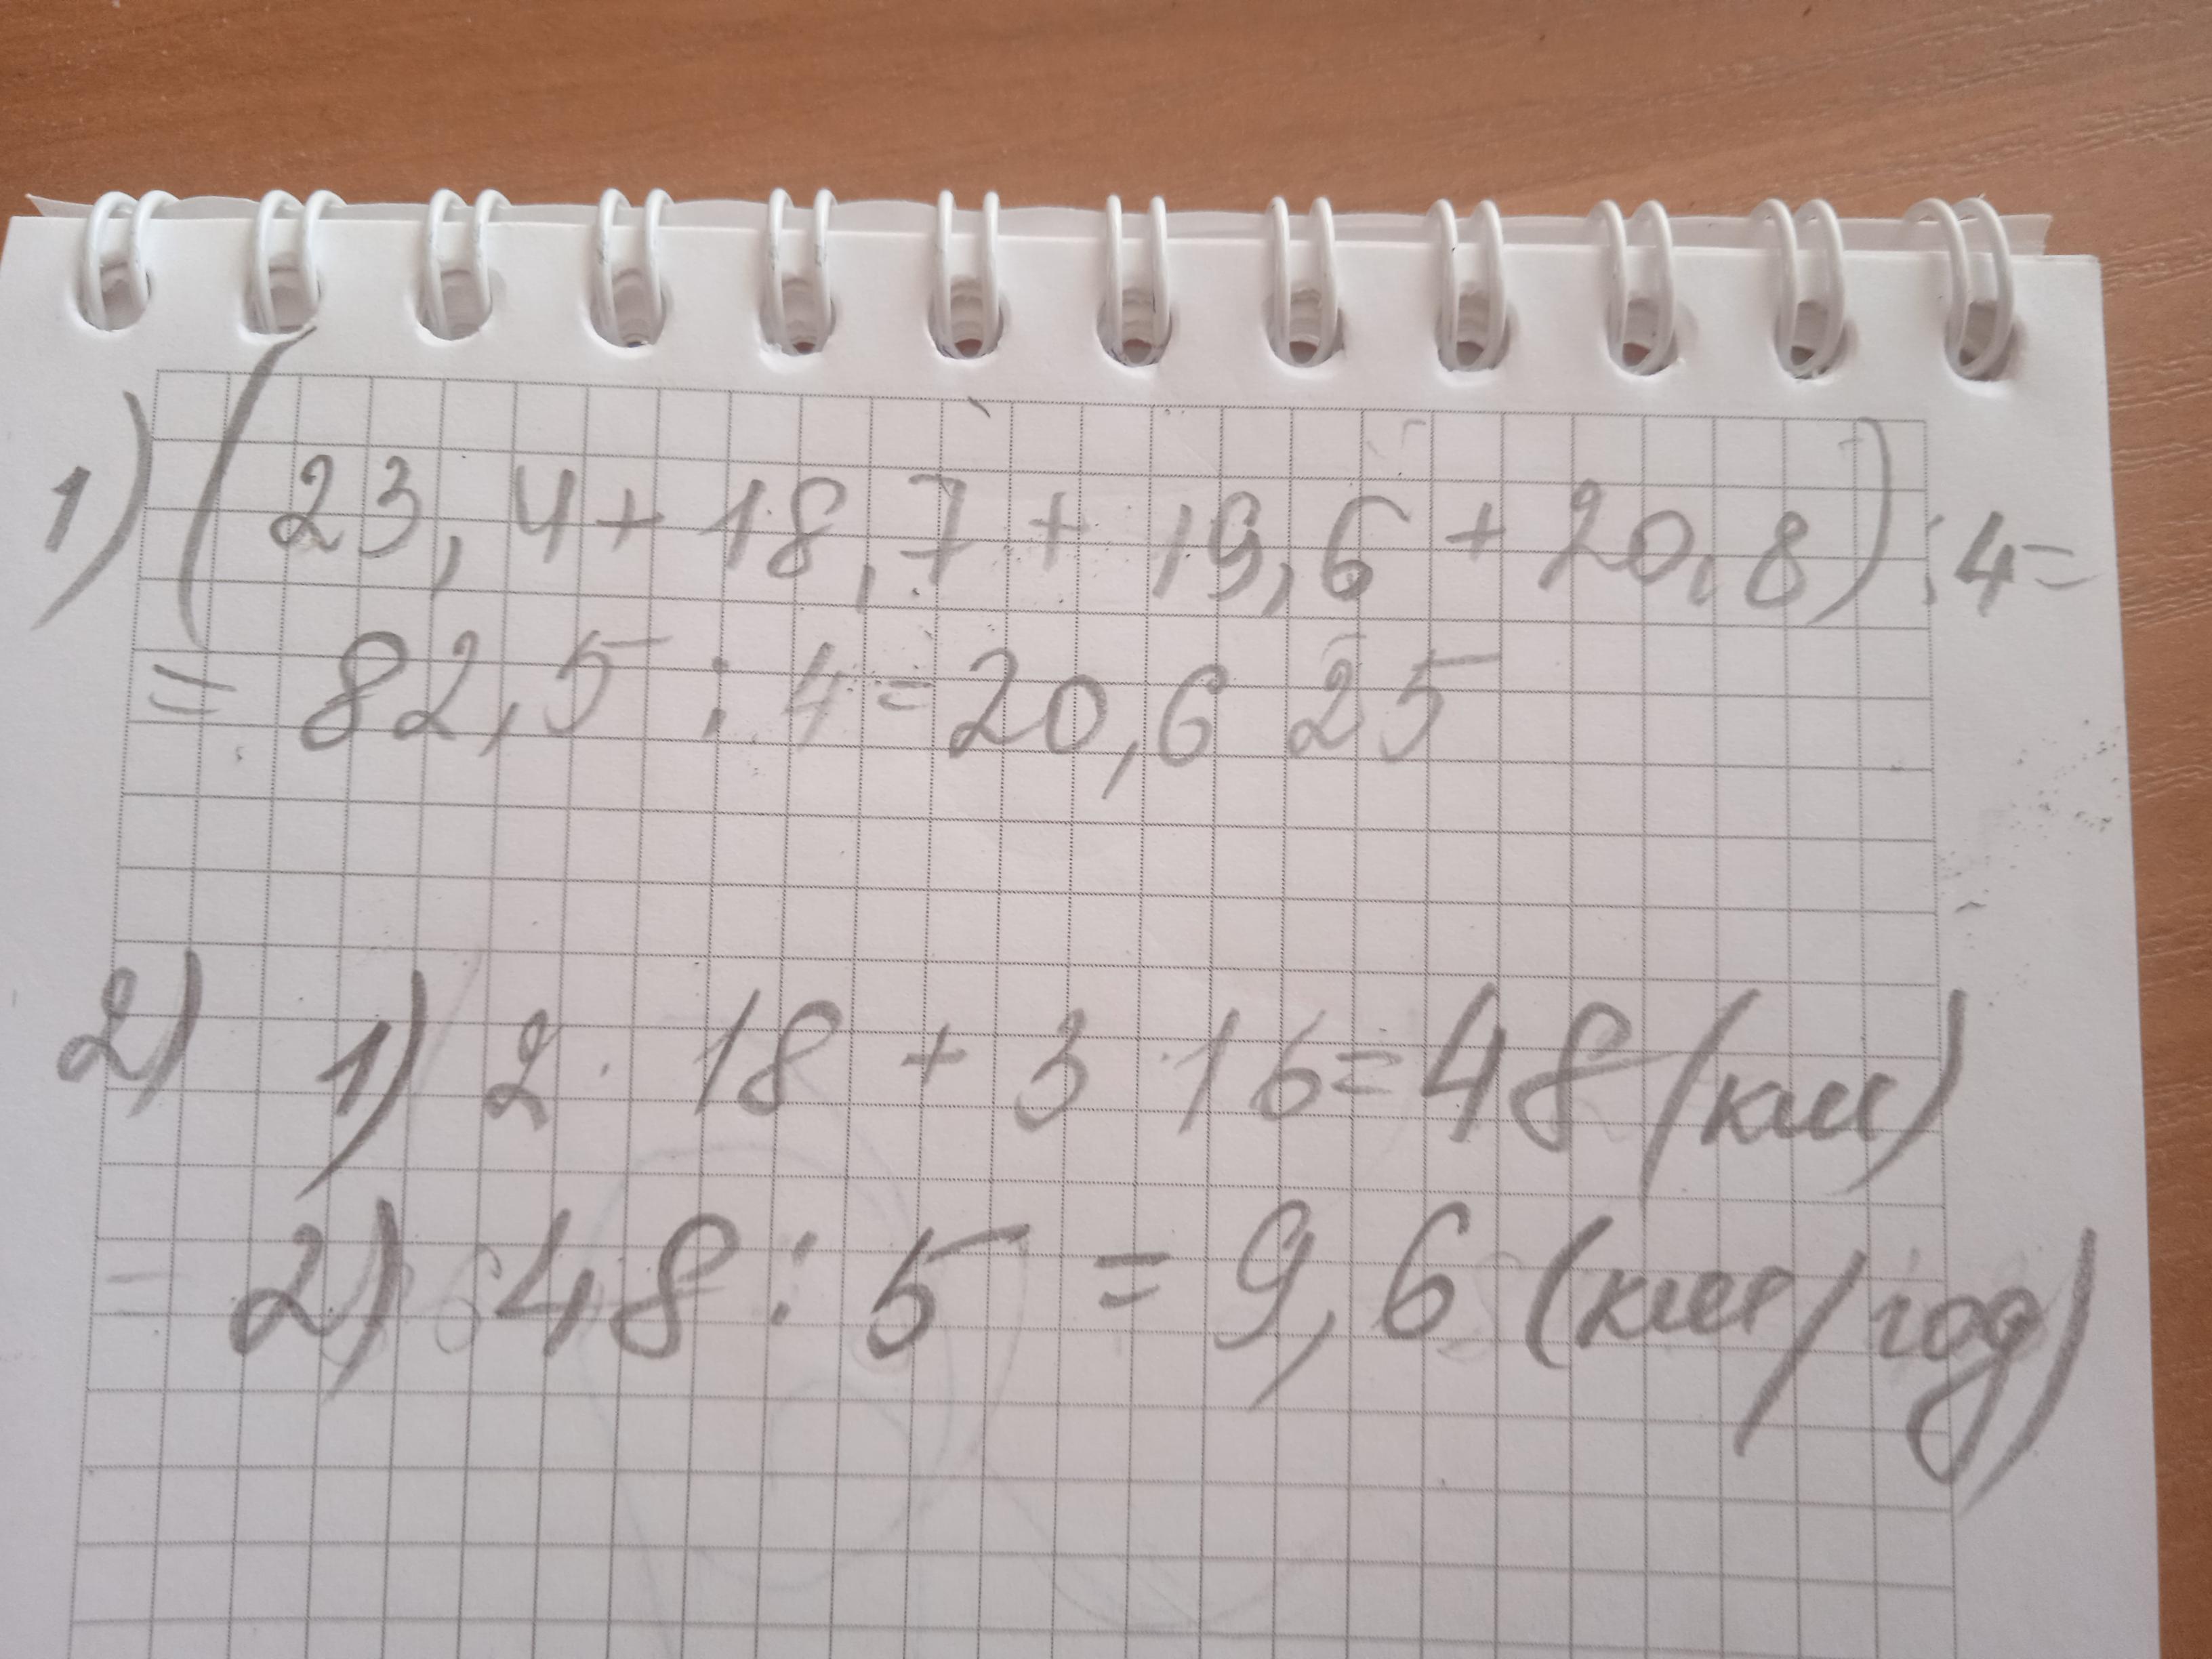 1) (23,4+18,7+19,6+20,8):4=
= 82,5:4=20,625
2) 1) 2·18+3·16=48(км)
2) 48:5=9,6(км/год)